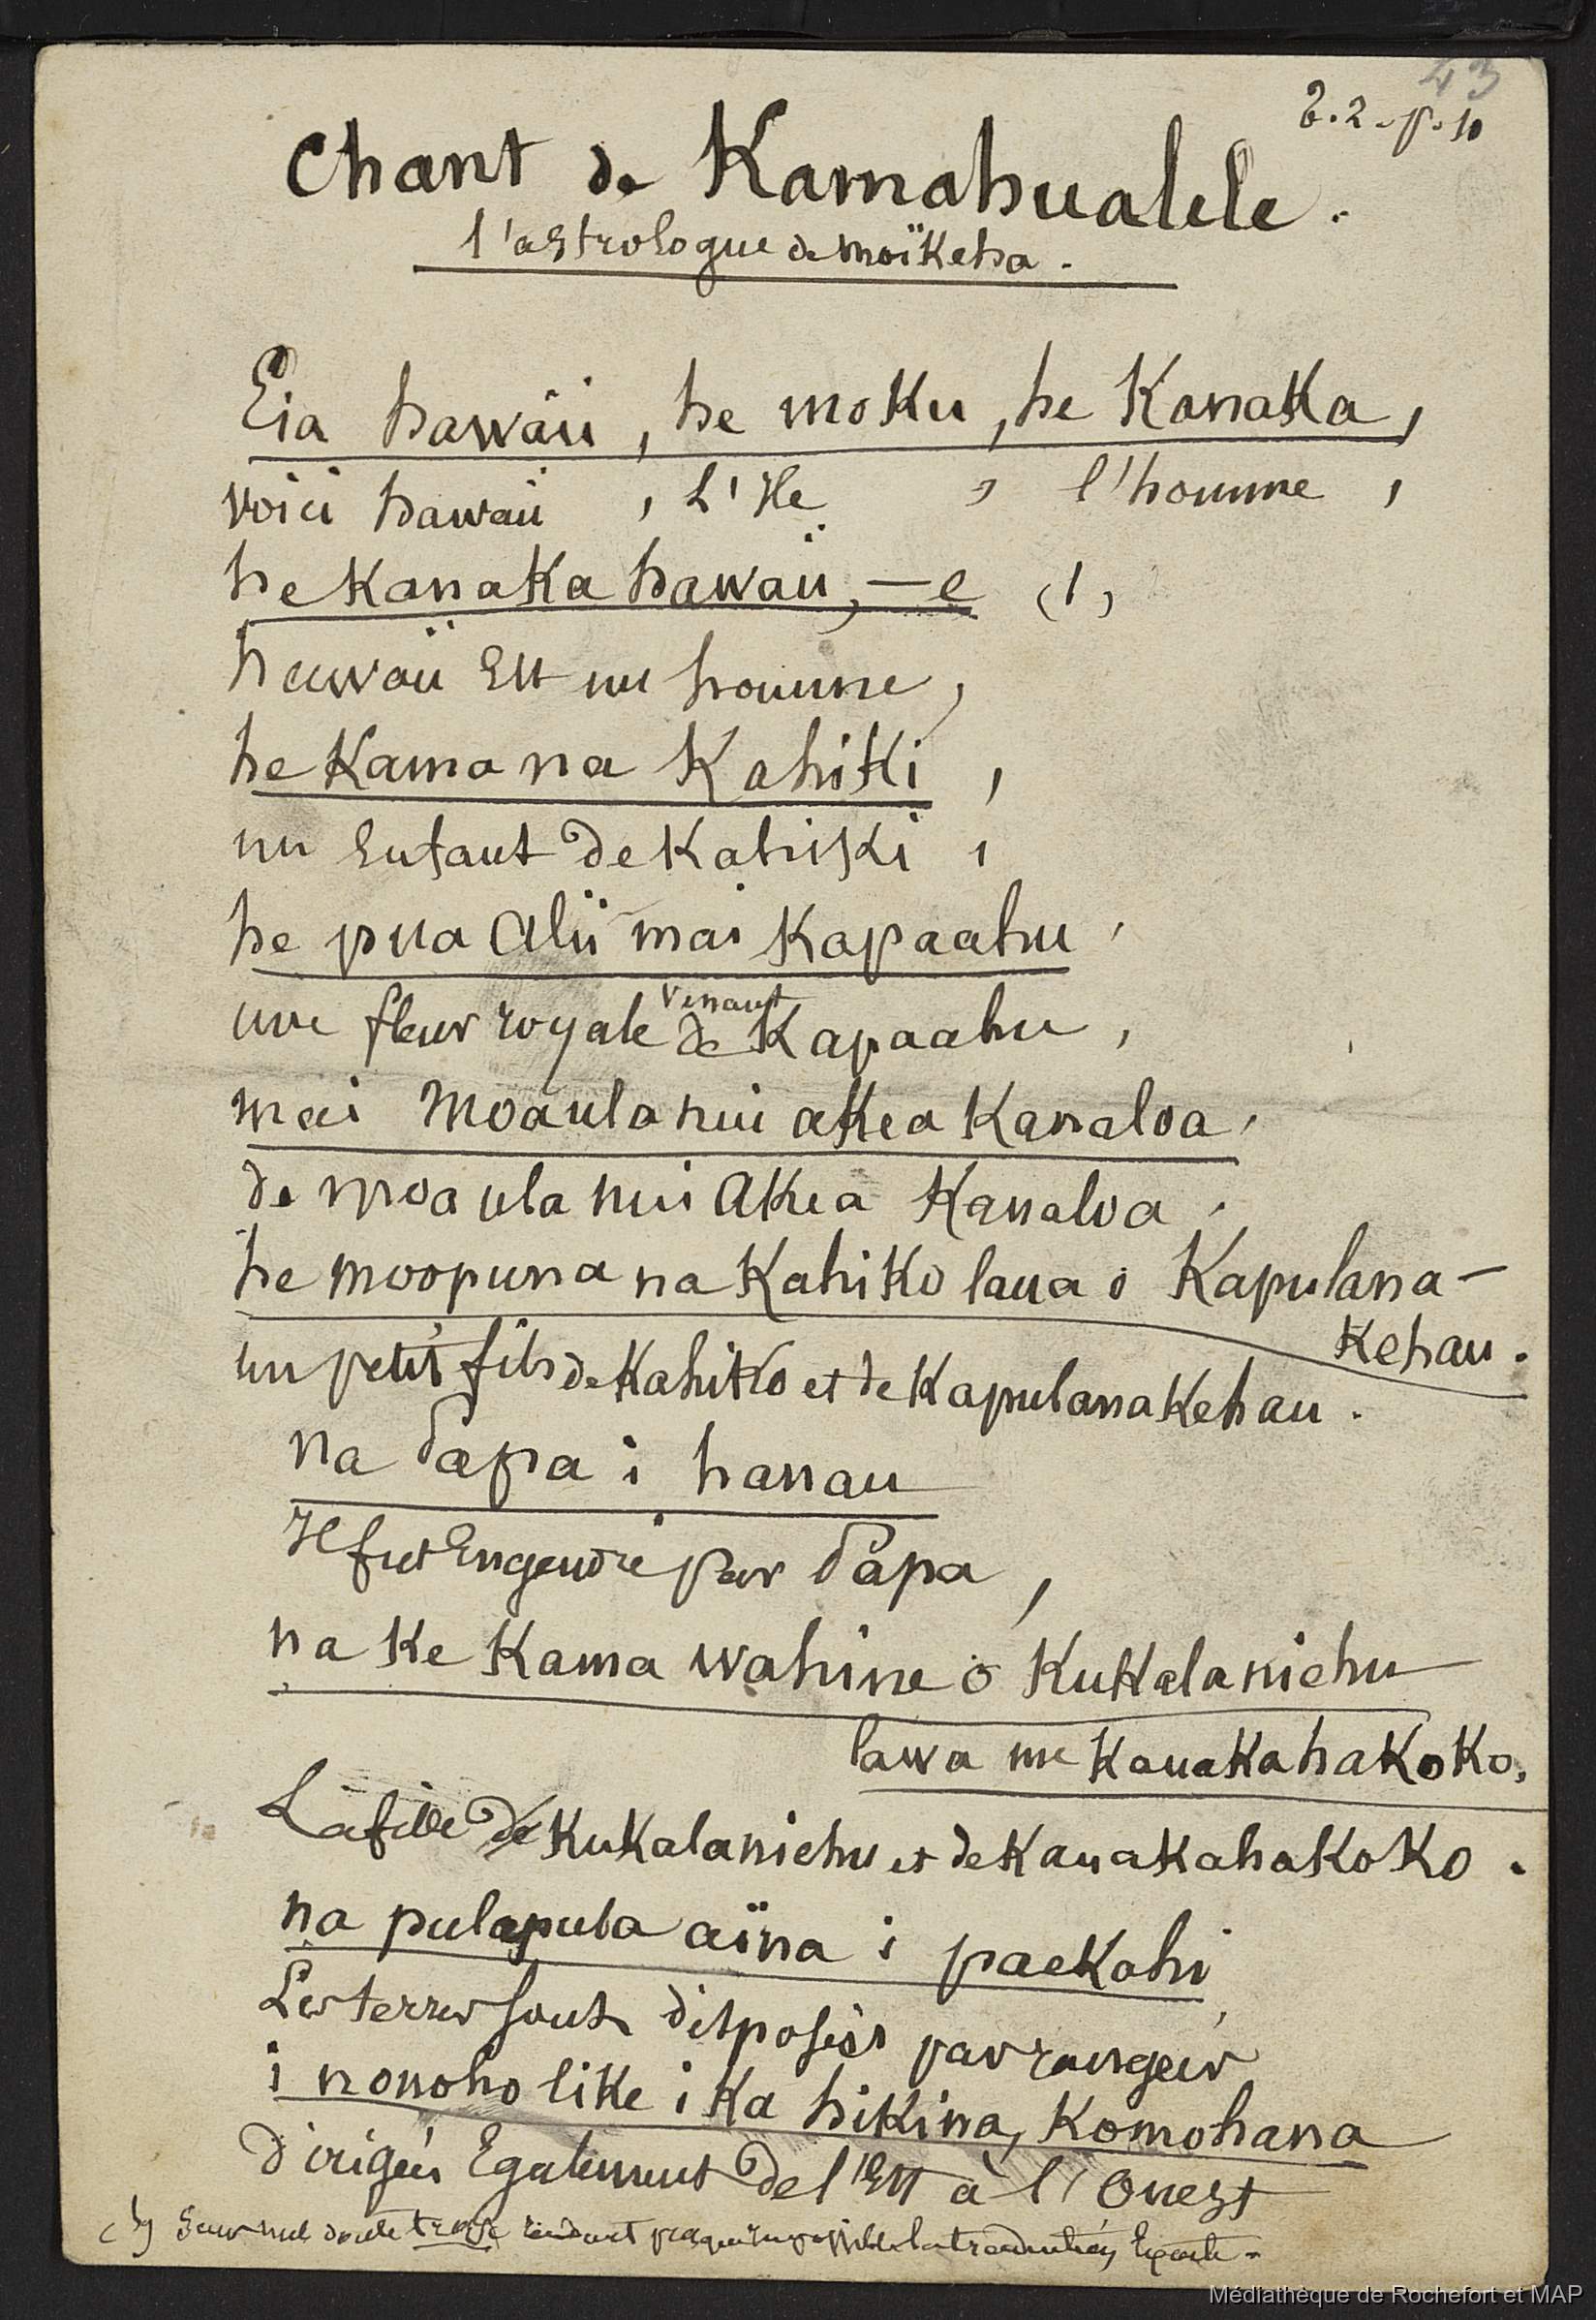 43
T. 2 - p. 10
Chant de Kamahualele.
l'astrologue de moïkeha.
Eia hawaii, he moku, he Kanaka,
voici hawaii, L'Ile, l'homme,
he kanaka hawaii, — e (1)
hawaii Est un homme,
he Kama na Kahiki,
un Enfant de Kahiki,
he pua Alii mai Kapaahu,
venant
une fleur royale de Kapaahu,
mai Moaula nui akea Kanaloa,
de moaula nui Akea Kanaloa,
he moopuna na Kahiko laua o Kapulana-
Kehau.
un petit fils de Kahiko et de KapulanaKehau.
na Papa i hanau
Il fut Engendré par Papa,
na Ke Kama wahine o Kukalaniehu
lawa me KauaKahaKoKo.
La fille de Kukalaniehu et de KauaKahaKoKo.
na pulapula aïna i paekahi
Les terres sont disposées par rangées
i nonoho like i Ka hikina, Komohana
Dirigées Egalement de l'Est à l'Ouest
sens nul doute rendant presqu'impossible la traduction Exacte.
Médiathèque de Rochefort et MAP